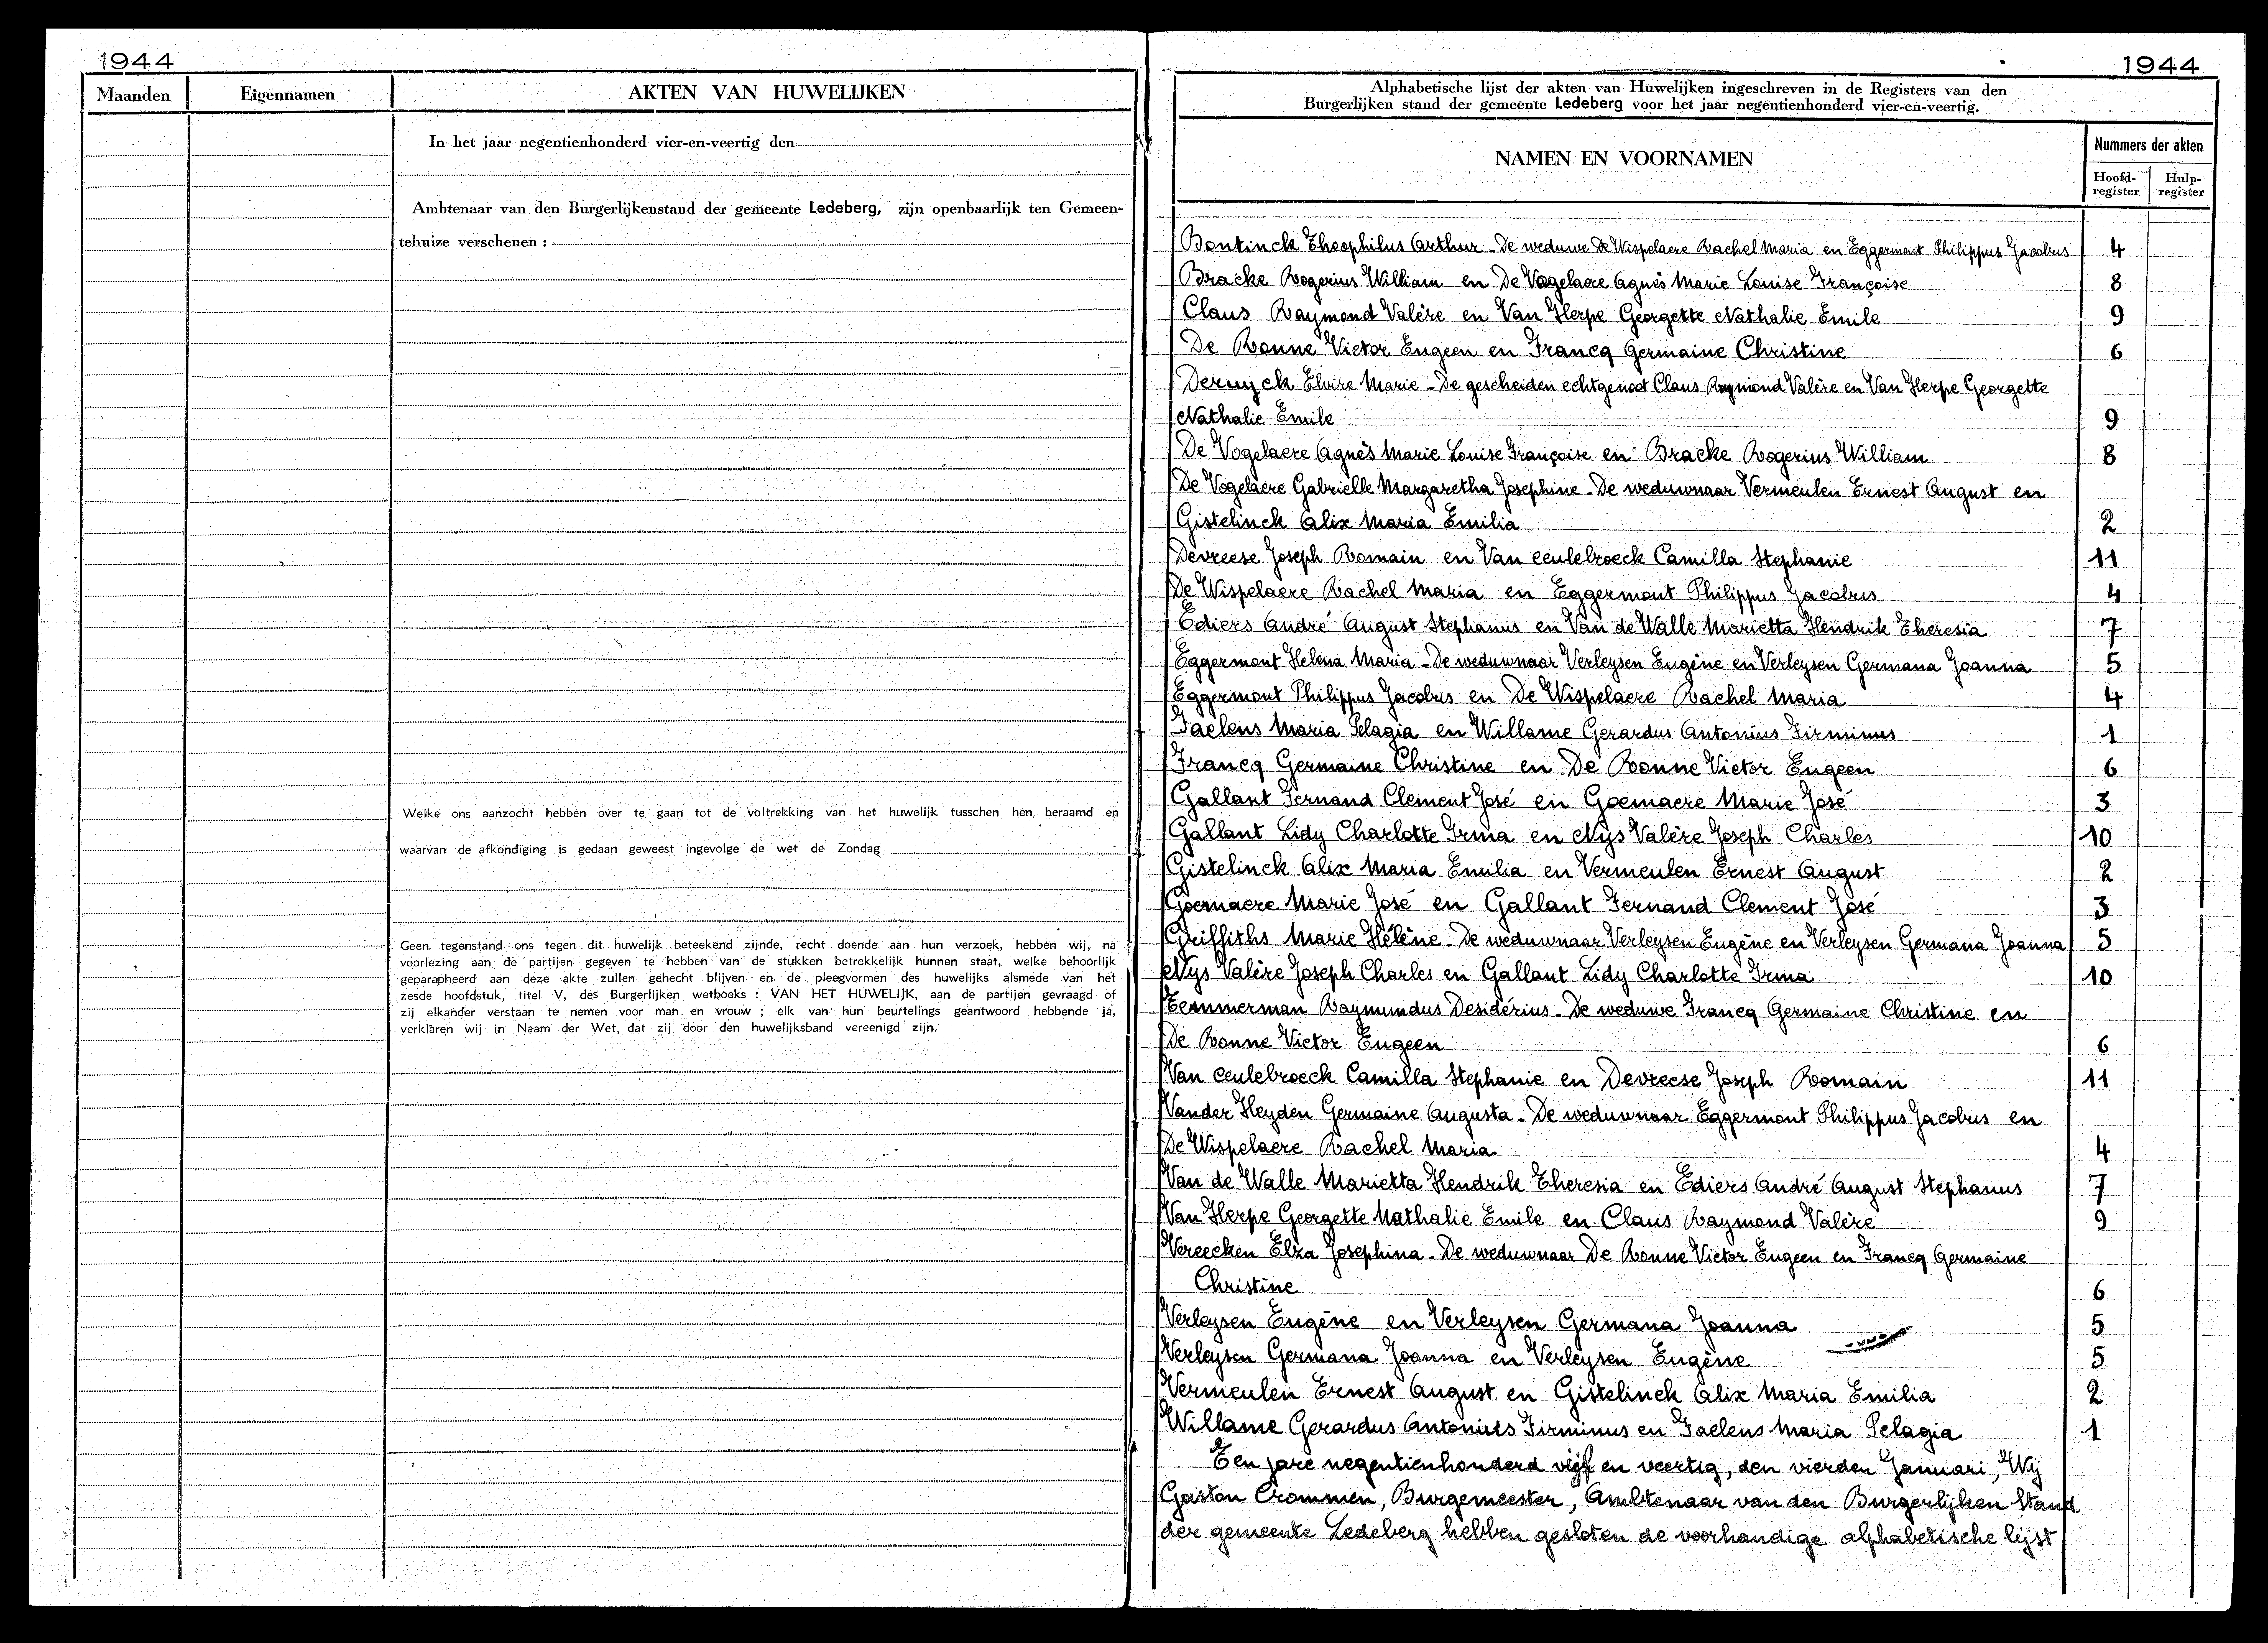 1944
Maanden
Eigennamen
AKTEN VAN HUWELIJKEN
In het jaar negentienhonderd vier-en-veertig den
Ambtenaar van den Burgerlijkenstand der gemeente Ledeberg, zijn openbaarlijk ten Gemeen-
tehuize verschenen :
Welke ons aanzocht hebben over te gaan tot de voltrekking van het huwelijk tusschen hen beraamd en
waarvan de afkondiging is gedaan geweest ingevolge de wet de Zondag
Geen tegenstand ons tegen dit huwelijk beteekend zijnde, recht doende aan hun verzoek, hebben wij, na
voorlezing aan de partijen gegeven te hebben van de stukken betrekkelijk hunnen staat, welke behoorlijk
geparapheerd aan deze akte zullen gehecht blijven en de pleegvormen des huwelijks alsmede van het
zesde hoofdstuk, titel V, des Burgerlijken wetboeks : VAN HET HUWELIJK, aan de partijen gevraagd of
zij elkander verstaan te nemen voor man en vrouw ; elk van hun beurtelings geantwoord hebbende ja,
verklaren wij in Naam der Wet, dat zij door den huwelijksband vereenigd zijn.
1944
Alphabetische lijst der akten van Huwelijken ingeschreven in de Registers van den
Burgerlijken stand der gemeente Ledeberg voor het jaar negentienhonderd vier-en-veertig.
NAMEN EN VOORNAMEN
Nummers der akten
Hoofd-register
Hulp-register
Bontinck Theophilus Arthur - De weduwe De Wispelaere Rachel Maria en Eggermont Philippus Jacobus 4
Bracke Rogerius William en De Vogelaere Agnès Marie Louise Françoise 8
Claus Raymond Valère en Van Herpe Georgette Nathalie Emile 9
De Ronne Victor Eugeen en Francq Germaine Christine 6
Deruyck Elvire Marie - De gescheiden echtgenoot Claus Raymond Valère en Van Herpe Georgette
Nathalie Emile 9
De Vogelaere Agnès Marie Louise Françoise en Bracke Rogerius William 8
De Vogelaere Gabriëlle Margaretha Josephine - De weduwnaar Vermeulen Ernest August en
Gistelinck Alix Maria Emilia 2
Devreese Joseph Romain en Van Ceulebroeck Camilla Stephanie 11
De Wispelaere Rachel Maria en Eggermont Philippus Jacobus 4
Ediers André August Stephanus en Van de Walle Marietta Hendrik Theresia 7
Eggermont Helena Maria - De weduwnaar Verleysen Eugène en Verleysen Germana Joanna 5
Eggermont Philippus Jacobus en De Wispelaere Rachel Maria 4
Faelens Maria Pelagia en Willame Gerardus Antonius Firminus 1
Francq Germaine Christine en De Ronne Victor Eugeen 6
Gallant Fernand Clement José en Goemaere Marie José 3
Gallant Lidy Charlotte Irma en Nijs Valère Joseph Charles 10
Gistelinck Alix Maria Emilia en Vermeulen Ernest August 2
Goemaere Marie José en Gallant Fernand Clement José 3
Griffiths Marie Hélène - De weduwnaar Verleysen Eugène en Verleysen Germana Joanna 5
Nys Valère Joseph Charles en Gallant Lidy Charlotte Irma 10
Temmerman Raymundus Desidérius - De weduwe Francq Germaine Christine en
De Ronne Victor Eugeen 6
Van Ceulebroeck Camilla Stephanie en Devreese Joseph Romain 11
Vander Heyden Germaine Augusta - De weduwnaar Eggermont Philippus Jacobus en
De Wispelaere Rachel Maria 4
Van de Walle Marietta Hendrik Theresia en Ediers André August Stephanus 7
Van Herpe Georgette Nathalie Emile en Claus Raymond Valère 9
Vereecken Elza Josephina - De weduwnaar De Ronne Victor Eugeen en Francq Germaine
Christine 6
Verleysen Eugène en Verleysen Germana Joanna 5
Verleysen Germana Joanna en Verleysen Eugène 5
Vermeulen Ernest August en Gistelinck Alix Maria Emilia 2
Willame Gerardus Antonius Firminus en Faelens Maria Pelagia 1
Ten jare negentienhonderd vijf en veertig, den vierden Januari, Wij
Gaston Crommen, Burgemeester, Ambtenaar van den Burgerlijken Stand
der gemeente Ledeberg hebben gesloten de voorhandige alphabetische lijst